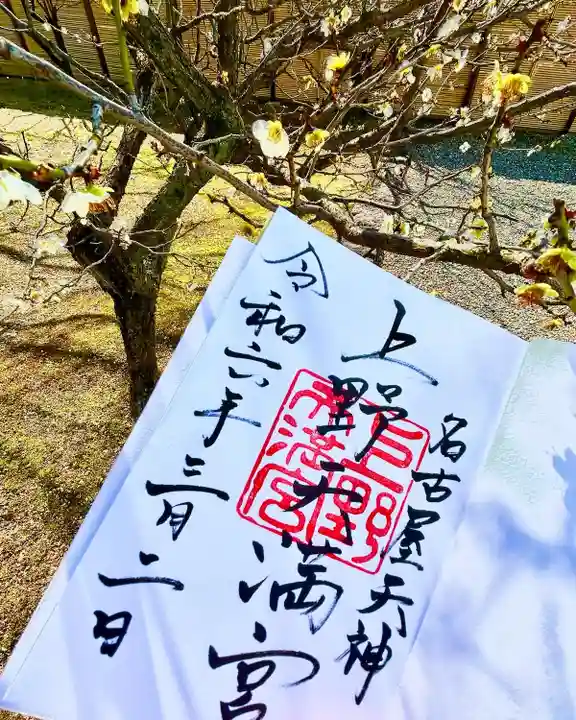 名古屋天神
上野天満宮
令和六年三月二日
上野天満宮